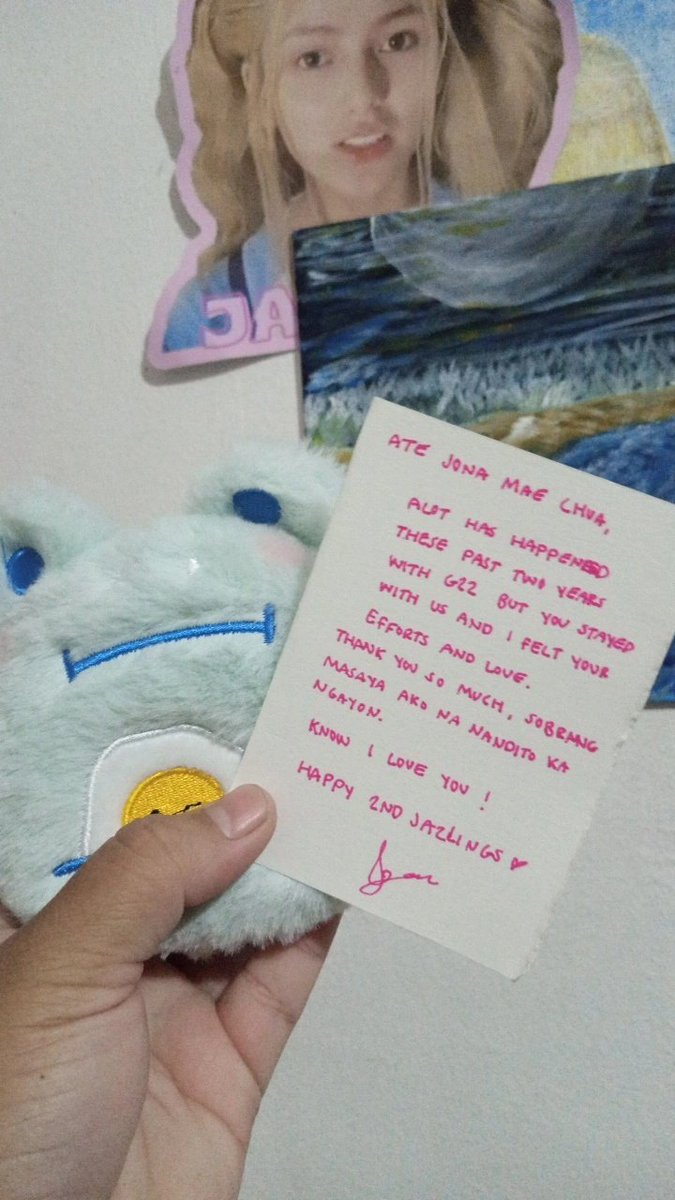 JA
ATE JONA MAE CHUA,
ALOT HAS HAPPENED
THESE PAST TWO YEARS
WITH G22 BUT YOU STAYED
WITH US AND I FELT YOUR
EFFORTS AND LOVE.
THANK YOU SO MUCH, SOBRANG
MASAYA AKO NA NANDITO KA
NGAYON.
KNOW I LOVE YOU!
HAPPY 2ND JAZLINGS